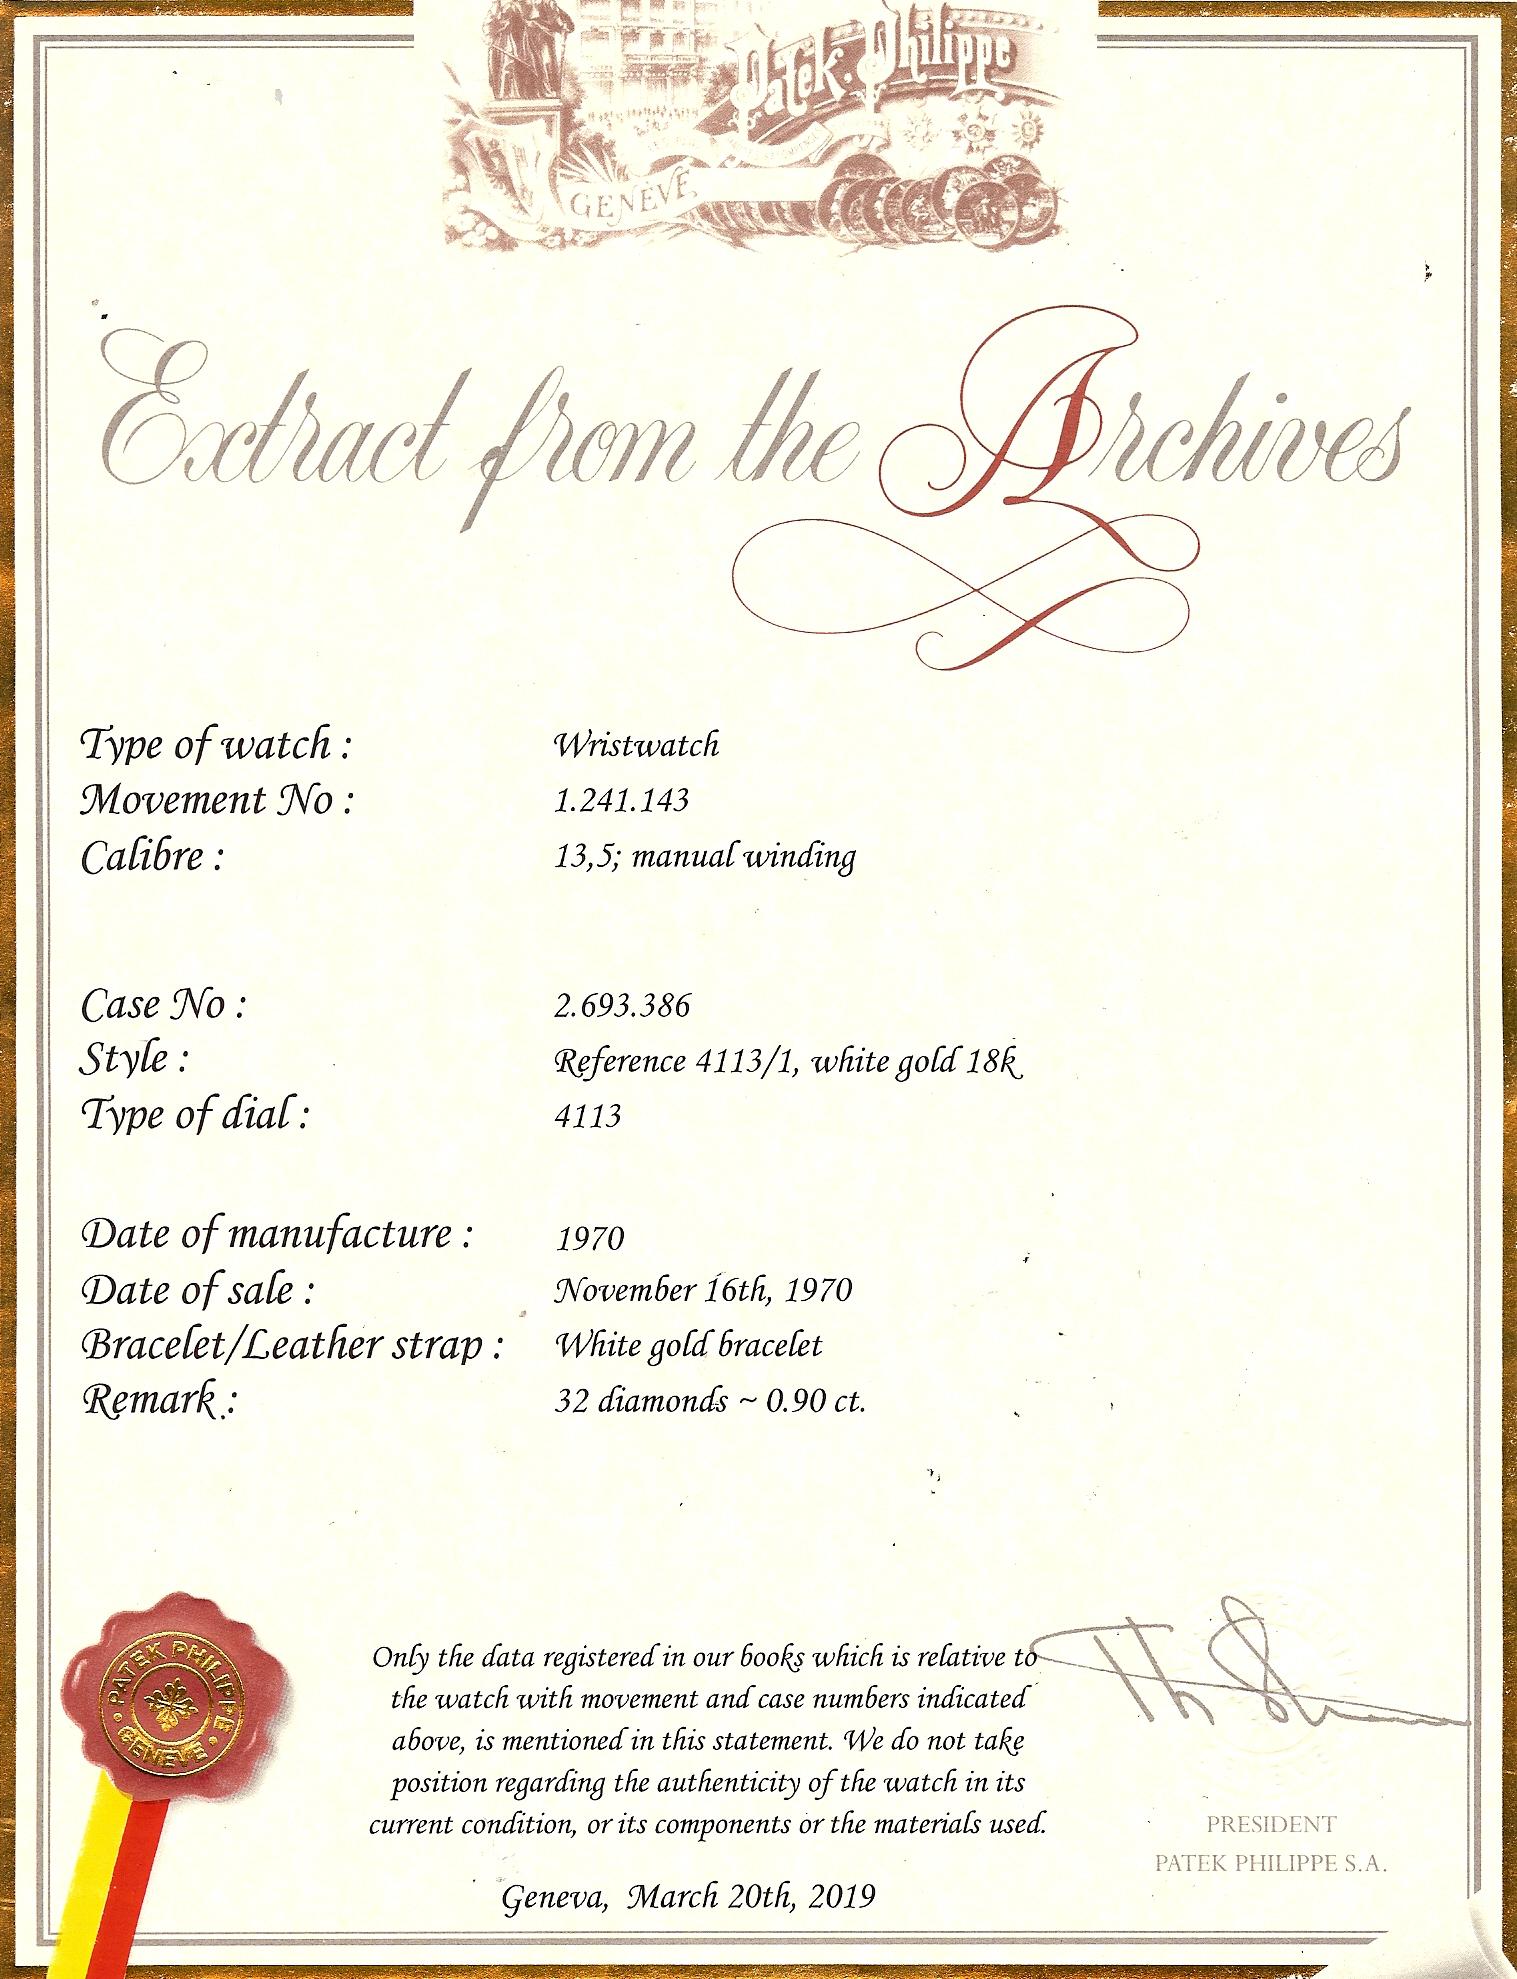 Patek Philippe
GENÈVE
Extract from the Archives
Type of watch : Wristwatch
Movement No : 1.241.143
Calibre : 13,5; manual winding
Case No : 2.693.386
Style : Reference 4113/1, white gold 18k
Type of dial : 4113
Date of manufacture : 1970
Date of sale : November 16th, 1970
Bracelet/Leather strap : White gold bracelet
Remark : 32 diamonds ~ 0.90 ct.
Only the data registered in our books which is relative to
the watch with movement and case numbers indicated
above, is mentioned in this statement. We do not take
position regarding the authenticity of the watch in its
current condition, or its components or the materials used.
Geneva, March 20th, 2019
PATEK PHILIPPE
GENEVE
PRESIDENT
PATEK PHILIPPE S.A.